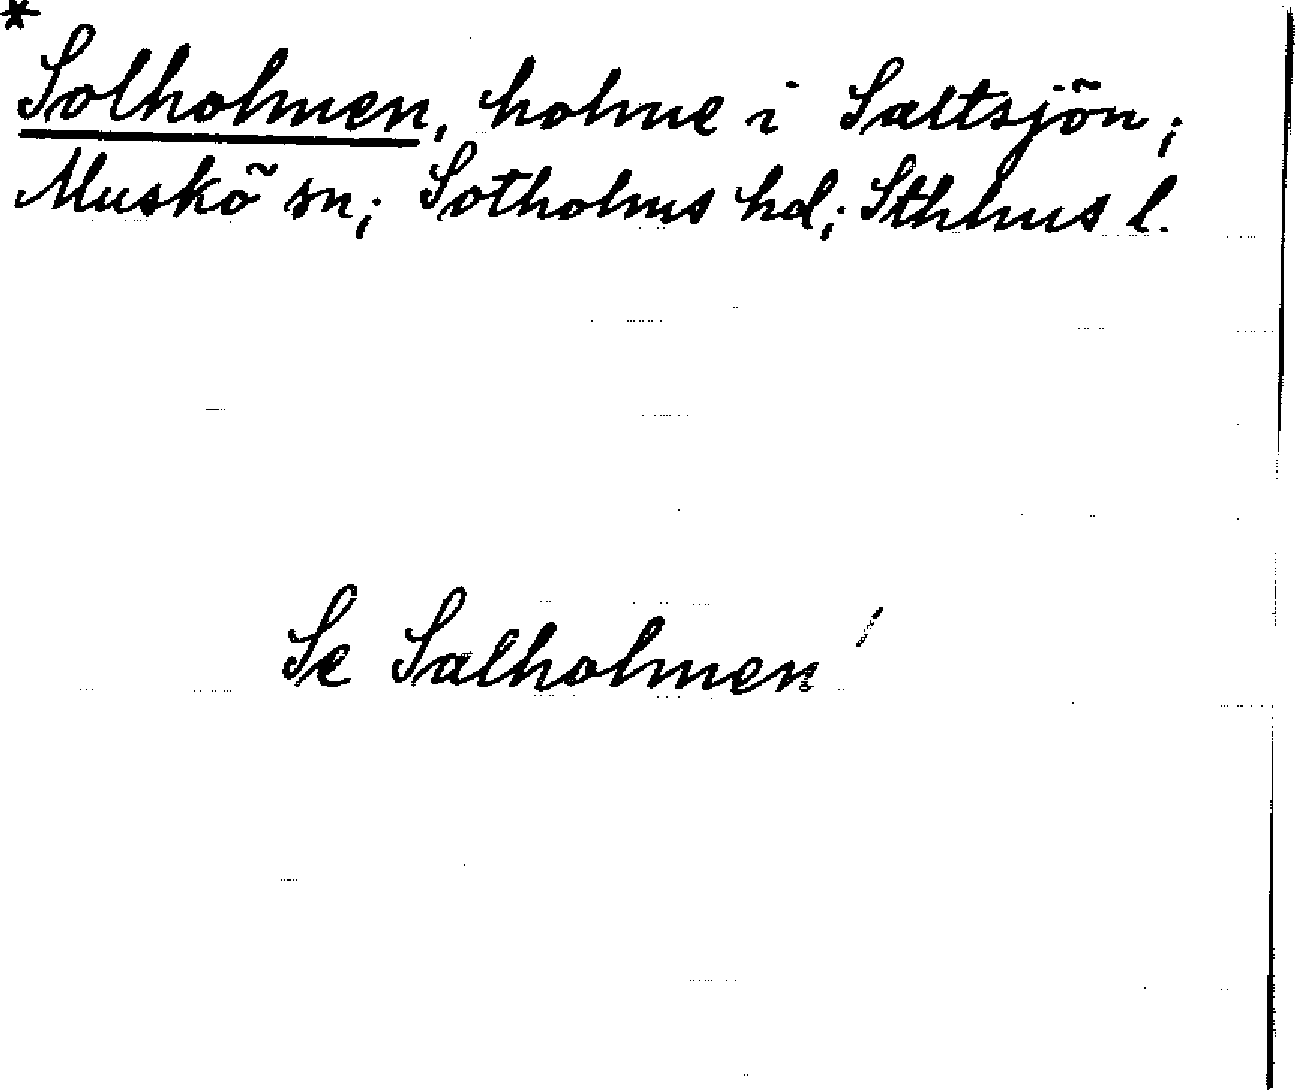 *
Solholmen, holme i Saltsjön;
Muskö sn; Sotholms hd; Sthlms l.
Se Salholmen!